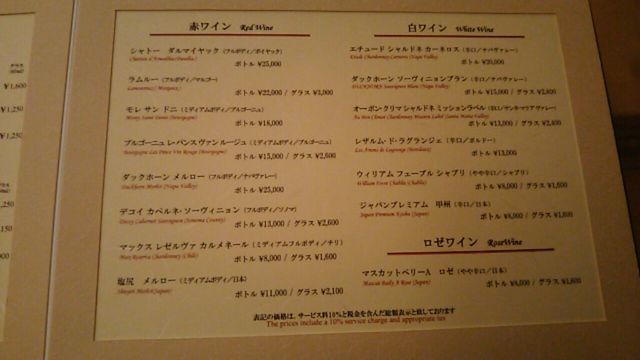 赤ワイン Red Wine
シャトー ダルマイヤック (フルボディ/ポイヤック)
Chateau d'Armailhac(Pauillac)
ボトル ¥25,000
ラムルー (フルボディ/マルゴー)
ボトル ¥22,000 / グラス ¥3,000
モレ サン ドニ (ミディアムボディ/ブルゴーニュ)
Morey Saint Denis (Bourgogne)
ボトル ¥18,000
ブルゴーニュ レパンスヴァンルージュ (ミディアムボディ/ブルゴーニュ)
Bourgogne Les Pince Vin Rouge (Bourgogne)
ボトル ¥15,000 / グラス ¥2,600
ダックホーン メルロー (フルボディ/ナパヴァレー)
Duckhorn Merlot (Napa Valley)
ボトル ¥25,000
デコイ カベルネ・ソーヴィニョン (フルボディ/ソノマ)
Decoy Cabernet Sauvignon (Sonoma County)
ボトル ¥13,000 / グラス ¥2,600
マックス レゼルヴァ カルメネール (ミディアムフルボディ/チリ)
Max Reserva (Chardonnay) (Chili)
ボトル ¥8,000 / グラス ¥1,600
塩尻 メルロー (ミディアムボディ/日本)
Shiojiri Merlot(Japan)
ボトル ¥11,000 / グラス ¥2,100
白ワイン White Wine
エチュード シャルドネ カーネロス (辛口/ナパヴァレー)
Etude Chardonnay Carneros (Napa Valley)
ボトル ¥20,000
ダックホーン ソーヴィニョンブラン (辛口/ナパヴァレー)
DUCKHORN Sauvignon Blanc (Napa Valley)
ボトル ¥15,000 / グラス ¥2,800
オーボンクリマ シャルドネ ミッションラベル (辛口/サンタマリアヴァレー)
ボトル ¥13,000 / グラス ¥2,400
レザルム・ド・ラグランジェ (辛口/ボルドー)
Les Arums de Lagrange (Bordeaux)
ボトル ¥13,000
ウィリアム フェーブル シャブリ (やや辛口/シャブリ)
William Fevre Chablis (Chablis)
ボトル ¥8,000 / グラス ¥1,600
ジャパンプレミアム 甲州 (辛口/日本)
Japan Premium Kosyu (Japan)
ボトル ¥8,000 / グラス ¥1,600
ロゼワイン RoseWine
マスカットベリーA ロゼ (やや辛口/日本)
Muscat Baily A Rose (Japan)
ボトル ¥8,000 / グラス ¥1,600
表記の価格は、サービス料10%と税金を含んだ総額表示と致しております
The prices include a 10% service charge and appropriate tax
¥1,600
¥1,250
¥1,250
グラス